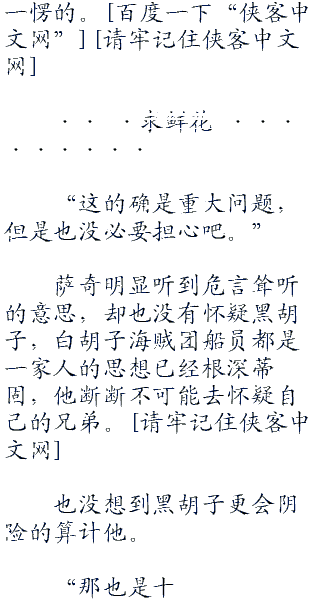 一愣的。[百度一下“侠客中
文网”][请牢记住侠客中文
网]
．．．求鲜花．．．
．．．．．．
“这的确是重大问题，
但是也没必要担心吧。”
萨奇明显听到危言耸听
的意思，却也没有怀疑黑胡
子，白胡子海贼团船员都是
一家人的思想已经根深蒂
固，他断断不可能去怀疑自
己的兄弟。[请牢记住侠客中
文网]
也没想到黑胡子更会阴
险的算计他。
“那也是十